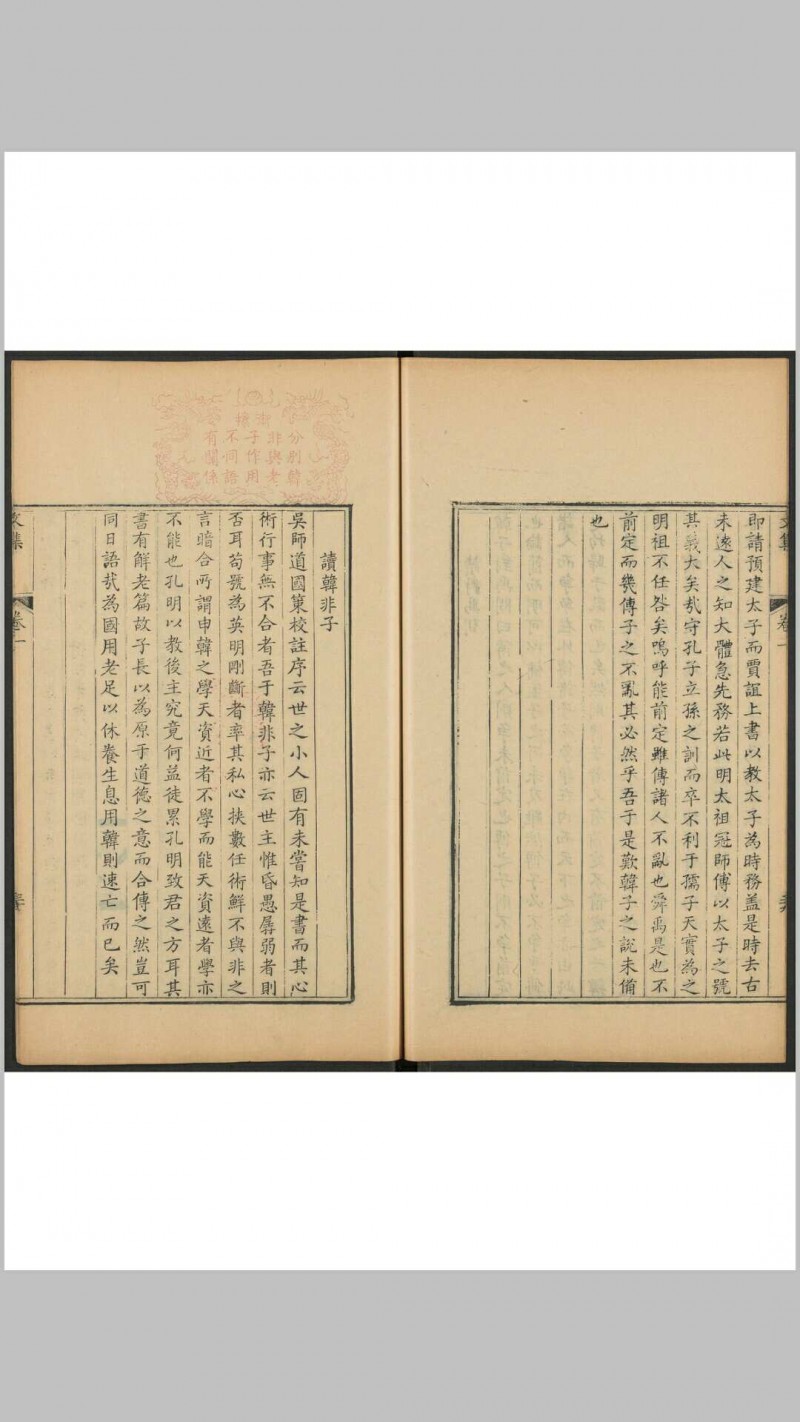 即請預建太子而賈誼上書以教太子為時務蓋是時去古
未遠人之知大體急先務若此明太祖冠師傅以太子之號
其義大矣哉守孔子立孫之訓而卒不利于孺子天實為之
明祖不任咎矣嗚呼能前定雖傳諸人不亂也舜禹是也不
前定而幾傳子之不亂其必然乎吾于是歎韓子之說未備
也
文集
卷一
讀韓非子
吳師道國策校註序云世之小人固有未嘗知是書而其心
術行事無不合者吾于韓非子亦云世主惟昏愚孱弱者則
否耳苟號為英明剛斷者率其私心挾數任術鮮不與非之
言暗合所謂申韓之學天資近者不學而能天資遠者學亦
不能也孔明以教後主究竟何益徒累孔明致君之方耳其
書有解老篇故子長以為原于道德之意而合傳之然豈可
同日語哉為國用老足以休養生息用韓則速亡而已矣
分別韓
非與老
子作用
不同語
有關係
文集
卷一